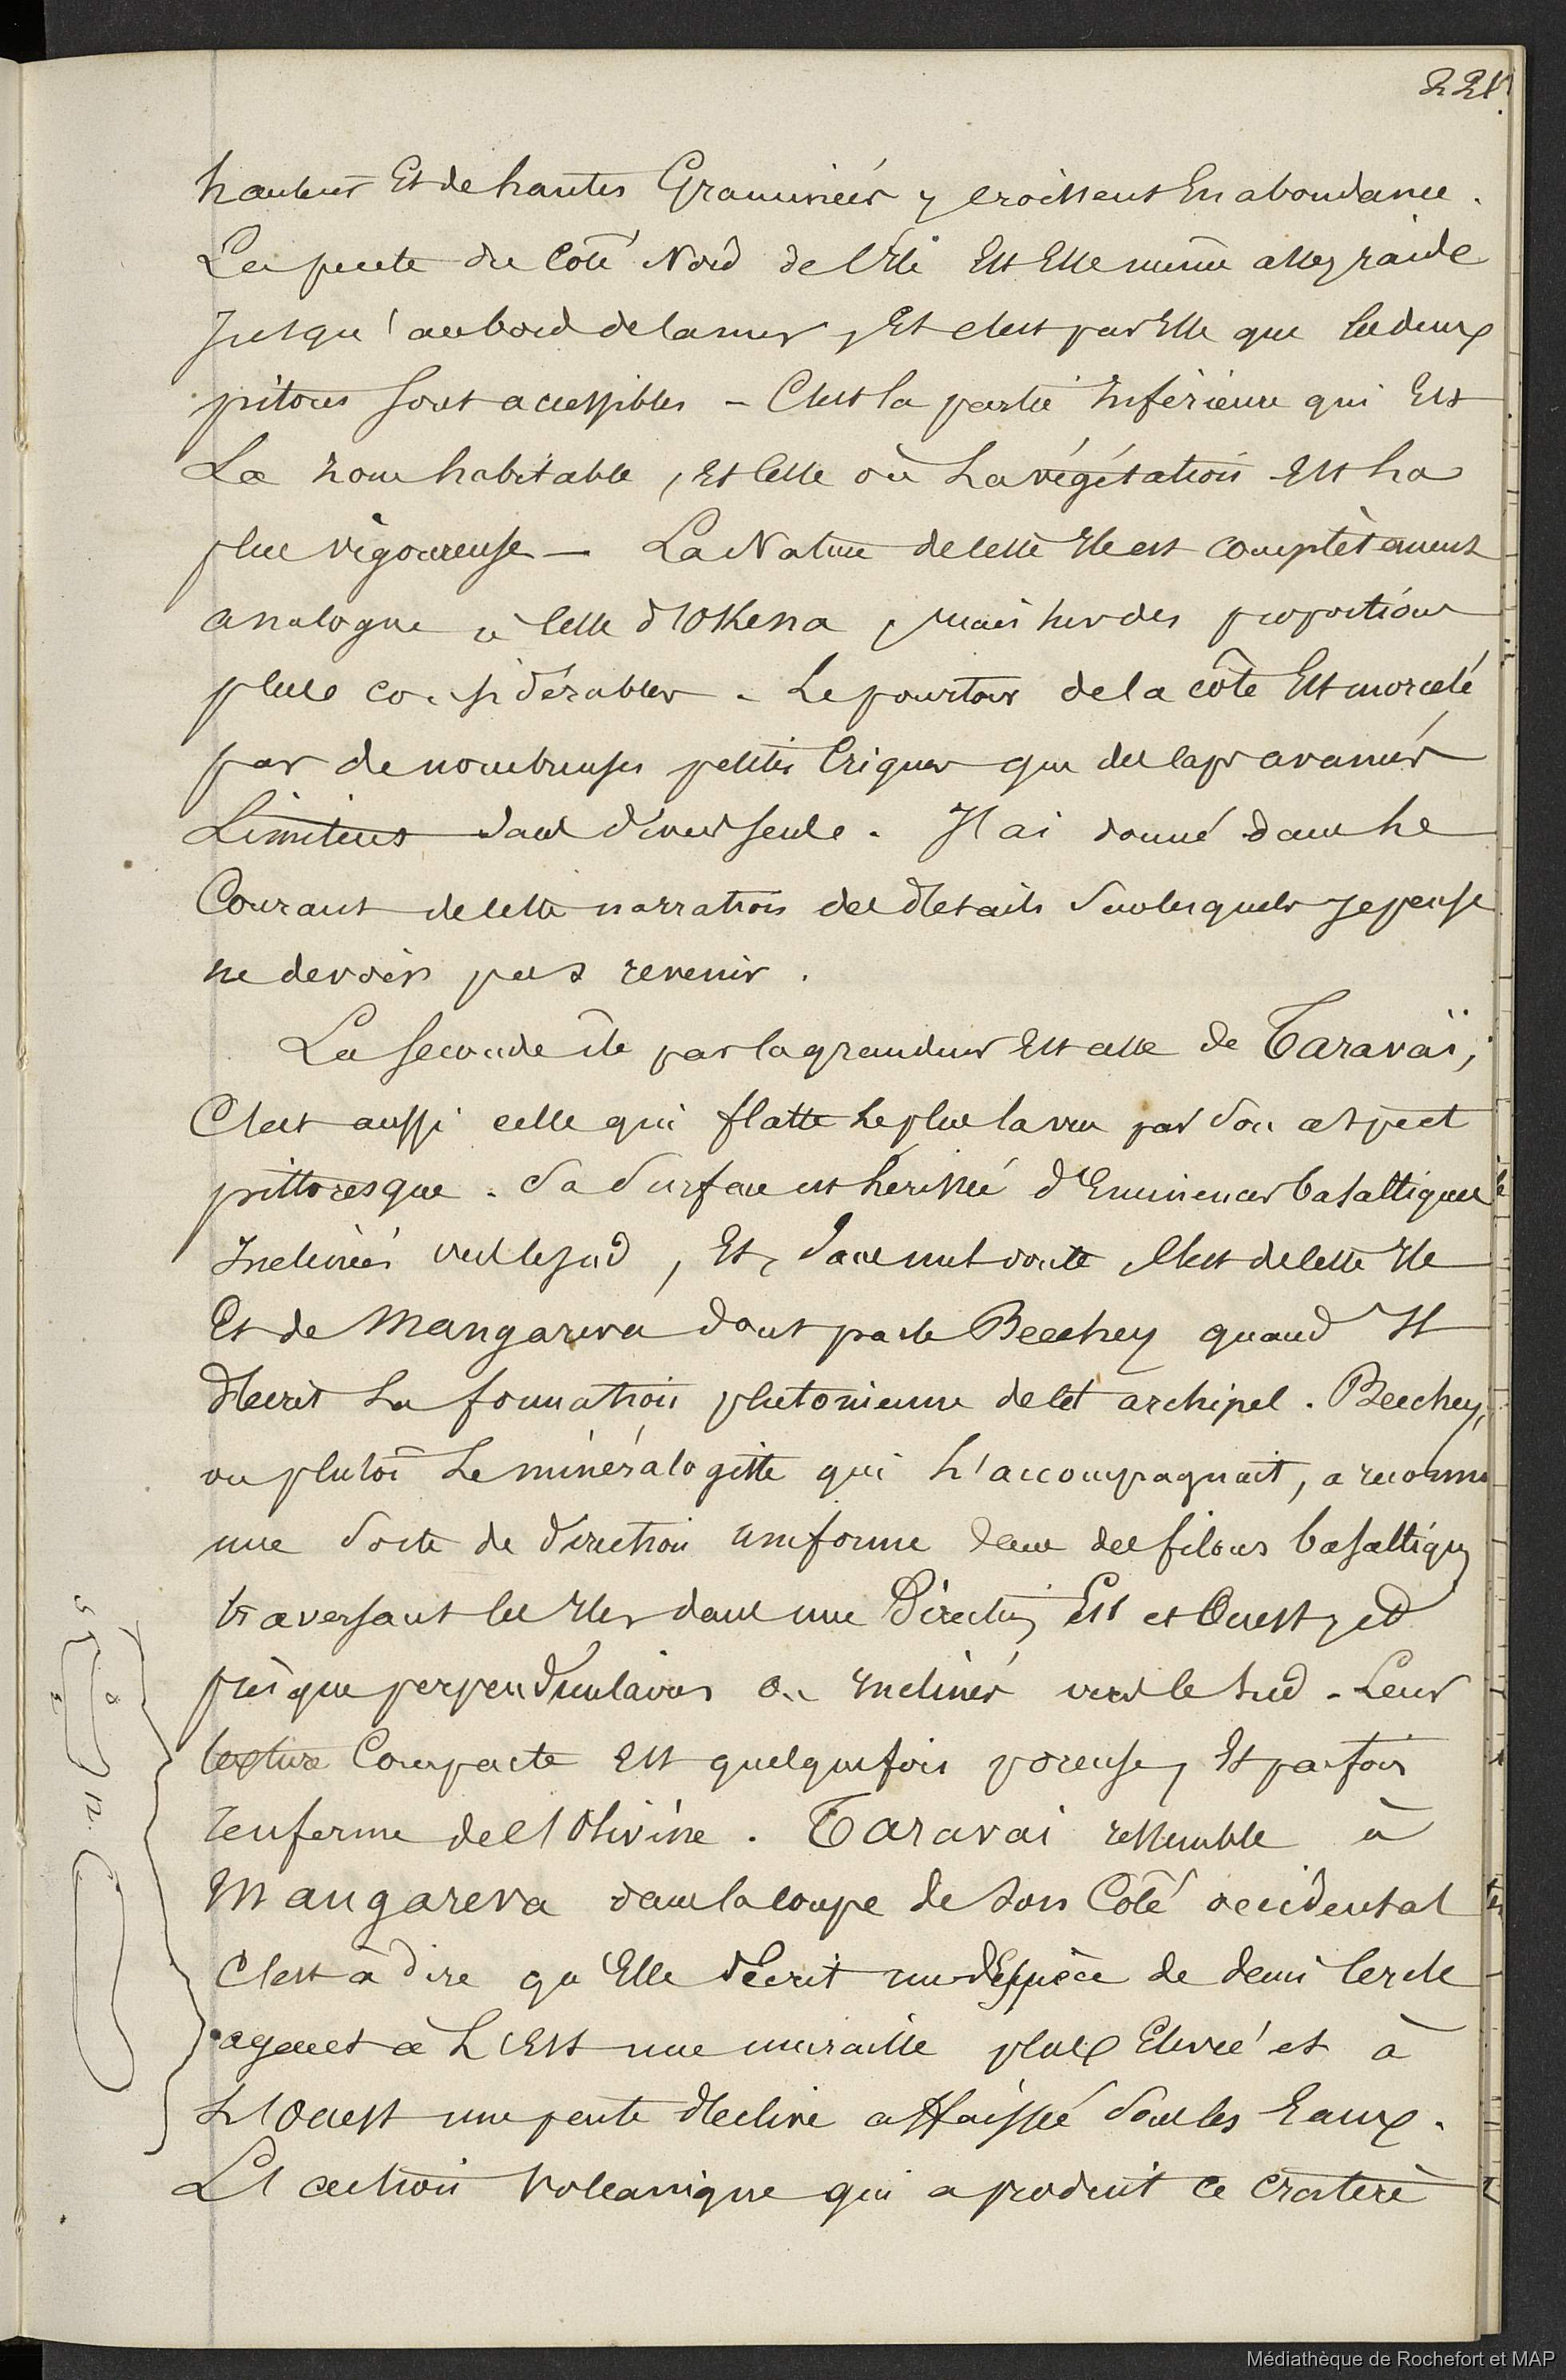 221.
hauteur Et de hautes Graminées y croissent En abondance.
La pente du Coté Nord de l'Ile Est Elle même assez raide
Jusqu'au bord de la mer, Et c'est par Elle que les deux
pitons sont accessibles - C'est la partie Inférieure qui Est
La zone habitable, Et Celle où La végétation Est La
plus vigoureuse - La Nature de cette Ile est complètement
analogue à Celle d'OKena, mais sur des proportions
plus considérables - Le pourtour de la côte Est morcelé
par de nombreuses petites Criques que des caps avancés
Limitent dans divers sens. J'ai donné dans Le
Courant de cette narration des détails sur lesquels Je pense
ne devoir pas revenir.
La seconde île par la grandeur Est celle de Taravaï,
C'est aussi celle qui flatte Le plus la vue par son aspect
pittoresque. Sa surface est hérissée d'Eminences basaltiques
Inclinées vers le sud, Et, sans nul doute, C'est de cette Ile
Et de Mangareva dont parle Beechey quand Il
décrit La formation plutonienne de cet archipel. Beechey,
ou plutôt Le minéralogiste qui L'accompagnait, a reconnu
une sorte de direction uniforme dans des filons basaltiques
traversant les Iles dans une Direction Est et Ouest, et
presque perpendiculaires ou Inclinés vers le sud - Leur
texture Compacte Est quelquefois poreuse, Et parfois
renferme de l'Olivine. Taravai ressemble à
Mangareva dans la coupe de son Côté occidental
C'est à dire qu'Elle décrit une Espèce de demi Cercle
ayant à L'Est une muraille plus Elevée et à
L'Ouest une pente déclive affaissée sous les Eaux.
L'action Volcanique qui a produit ce cratère
Médiathèque de Rochefort et MAP